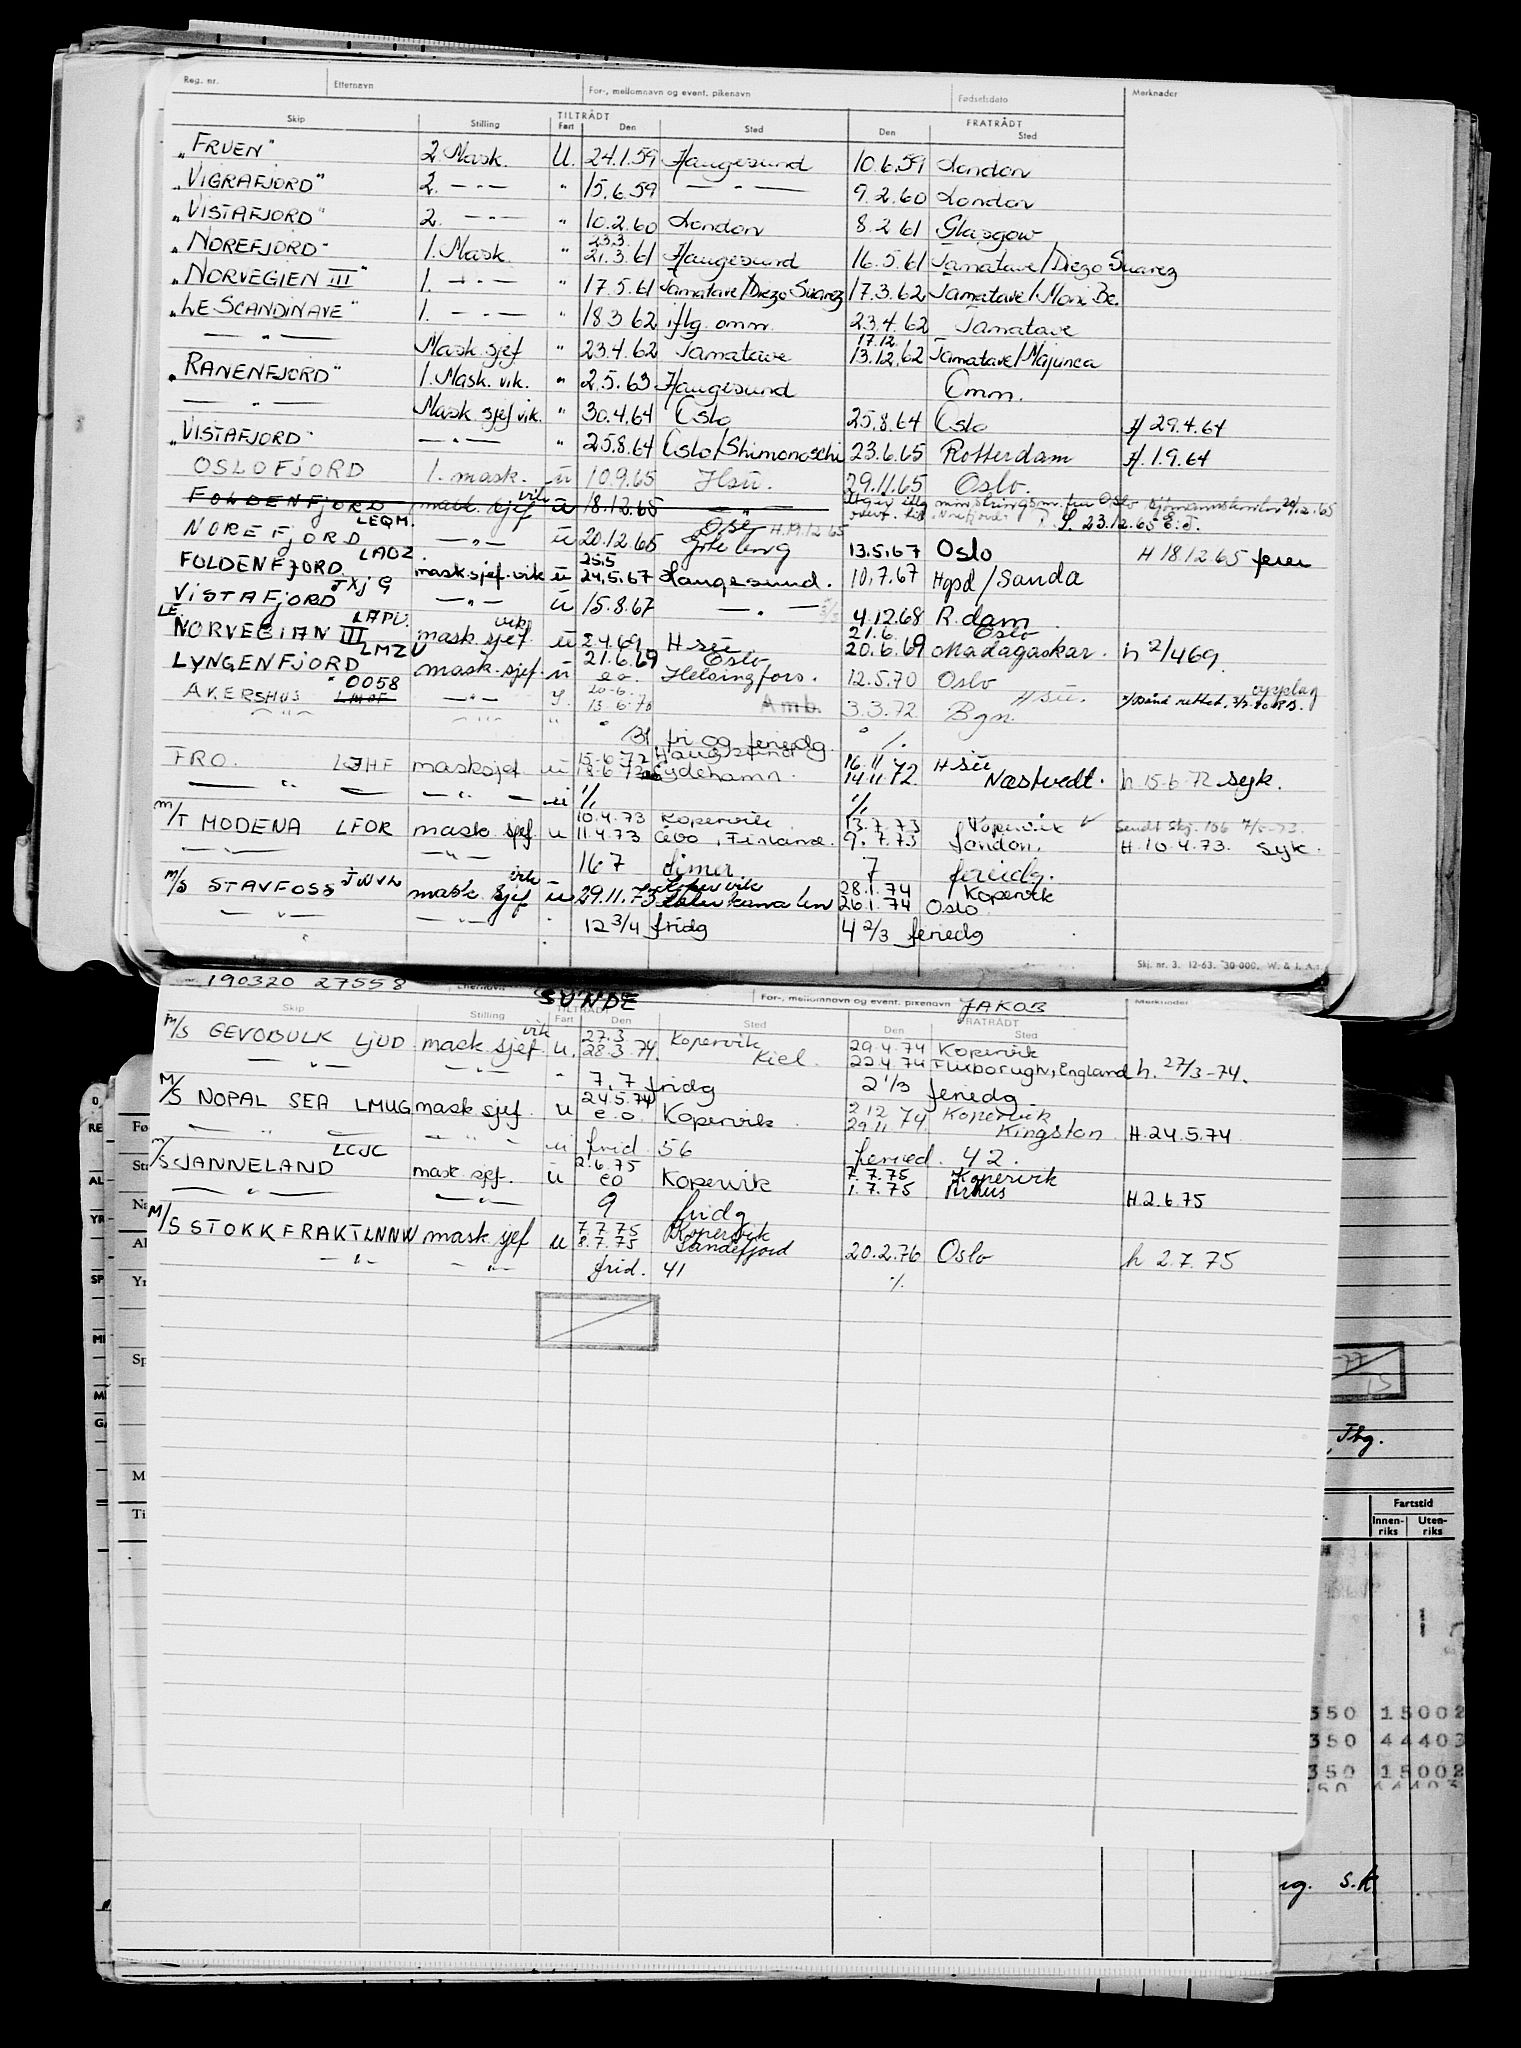 Reg. nr. Etternavn For-, mellomnavn og event. pikenavn Fødselsdato Merknader
Skip Stilling TILTRÅDT Fart Den Sted Den FRATRÅDT Sted
„FRUEN" 2 Mask. U. 24.1.59 Haugesund 10.6.59 London
„VIGRAFJORD" 2. — " — " 15.6.59 — " — 9.2.60 London
„VISTAFJORD" 2. — " — " 10.2.60 London 8.2 61 Glasgow
„NOREFJORD" 1. Mask. " 23.3. 21.3.61 Haugesund 16.5.61 Tamatave/Diego Suarez
„NORVEGIEN III" 1. — " — " 17.5.61 Tamatave/Diego Suarez 17.3.62 Tamatave/
„LE SCANDINAVE" 1. — " — " 18.3 62 iflg. omm. 23.4.62 Tamatave
— " — Mask. sjef " 23.4.62 Tamatave 17.12 13.12.62 Tamatave/Majunca
„RANENFJORD" 1. Mask. vik. " 2.5.63 Haugesund Omm.
— " — Mask sjef vik. " 30.4.64 Oslo 25.8.64 Oslo H 29.4.64
„VISTAFJORD" — " — " 25.8.64 Oslo/Shimonoschi 23.6.65 Rotterdam H. 1.9.64
OSLOFJORD 1. mask. ü 10.9.65 Hsü. 29.11.65 Oslo.
FOLDENFJORD mask. sjef vik ü 18.12.65 — " —
NOREFJORD LEQM. — " — ü 20.12.65 H.19.12.65 Göteborg 13.5.67 Oslo H 18.12.65 ferie
S. 23.12.65 E.J.
FOLDENFJORD LAOZ. mask.sjef.vik ü 25.5 24.5.67 Haugesund. 10.7.67 Hgsd/Sanda
VISTAFJORD TXJG — " — ü 15.8.67 — " — 4.12.68 R.dam
LE NORVEGIAN III LAPU. mask. sjef vik. ü 2.4.69 Hsü 21.6. 20.6.69 Oslo Madagaskar. h 2/4 69
LYNGENFJORD LMZU mask. sjef. ü 21.6.69 e.o. Oslo Helsingfors. 12.5.70 Oslo
AKERSHUS 0058 LMOF — " — 20.6. 13.6.70 Amb. 3.3.72 Hsü. Bgn. opplag
" " 31 fri og feriedg. " %
FRO. LJHF masksjef ü 15.6.72 Haugesund Eydehamn. 16.11 72 14.11.72. Hsü Næstvedt. h 15.6.72 syk.
— " — — " — ü % %
M/T MODENA LFOR mask. sjef. u 10.4.73 11.4.73 Kopervik Åbo, Finland. 13.7.73 9.7.73 Kopervik London. Sendt Skj. 106 7/5-73. H. 10.4.73. syk.
— " — — " — 16 7 timer 7 feriedg.
M/S STAVFOSS JWVL mask sjef vik ü 29.11.73 Kopervik 28.1.74 26.1.74 Kopervik Oslo
— " — — " — " 12 3/4 fridg 4 2/3 feriedg
Skj. nr. 3. 12-63. 30-000. W. & L. A.s
190320 27558 Etternavn SUNDE For-, mellomnavn og event. pikenavn JAKOB Merknader
Skip Stilling TILTRÅDT Fart Den Sted Den FRATRÅDT Sted
M/S GEVOBULK LJUD mask. sjef vik u. 27.3 28.3.74. Kopervik Kiel. 29.4.74 22.4.74 Kopervik h. 27/3-74.
— " — — " — " 7,7 fridg 2 1/3 feriedg.
M/S NOPAL SEA LMUG mask sjef. u 24.5.74 e.o. Kopervik 2 12 74 29.11.74 Kopervik Kingston H. 24.5.74
— " — — " — ü frid 56 feried. 42.
M/S JANNELAND LCJC mask. sjef. ü 2.6.75 eo Kopervik 7.7.75 1.7.75 Kopervik Århus H. 2.6.75
— " — — " — 9 fridg
M/S STOKKFRAKT LNNW mask sjef u 7.7.75 8.7.75 Kopervik Sandefjord 20.2.76 Oslo h 2.7.75
— " — — " — frid. 41 %
Thg.
Fartstid
Innen-riks Uten-riks
350 15002
350 44403
350 15002
ug. s.k.